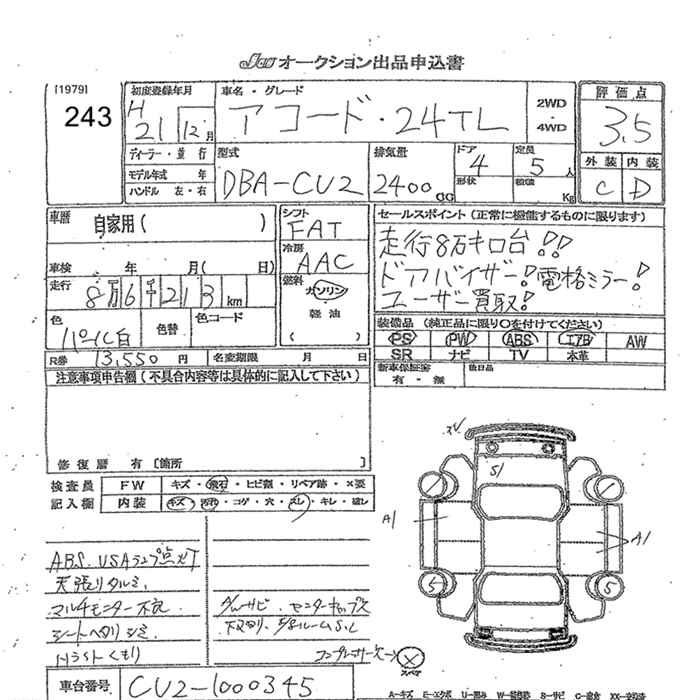 オークション出品申込書
[1979]
243
初度登録年月
H
21 12 月
ディーラー・並行
モデル年式 年
ハンドル 左・右
車名・グレード
アコード・24TL
2WD
・
4WD
型式
DBA-CU2
排気量
2400 CC
ドア
4
形状
定員
5 人
積載
Kg
評価点
3.5
外装 内装
C D
車歴 自家用( )
車検 年 月( 日)
走行 8万6千213 km
色
パール白
色替
色コード
R券 13,550 円 名変期限 月 日
シフト
FAT
冷房
AAC
燃料
ガソリン
・
軽油
( )
セールスポイント(正常に機能するものに限ります)
走行8万キロ台!!
ドアバイザー!電格ミラー!
ユーザー買取!
装備品(純正品に限り○を付けてください)
PS PW ABS エアB AW
SR ナビ TV 本革
新車保証書
有・無
後日品
注意事項申告欄(不具合内容等は具体的に記入して下さい)
修復歴 有 [箇所 ]
検査員 FW キズ・飛石・ヒビ割・リペア跡・×要
記入欄 内装 キズ・汚れ・コゲ・穴・スレ・キレ・破レ
ABS. USAランプ点灯
天張りタルミ.
マルチモニター不良
シートヘタリシミ
トランクくもり
下廻り
コンプレッサー欠
スペア
S1
A1
A1
S
S
車台番号 CU2-1000345
A-キズ E-エクボ U-凹み